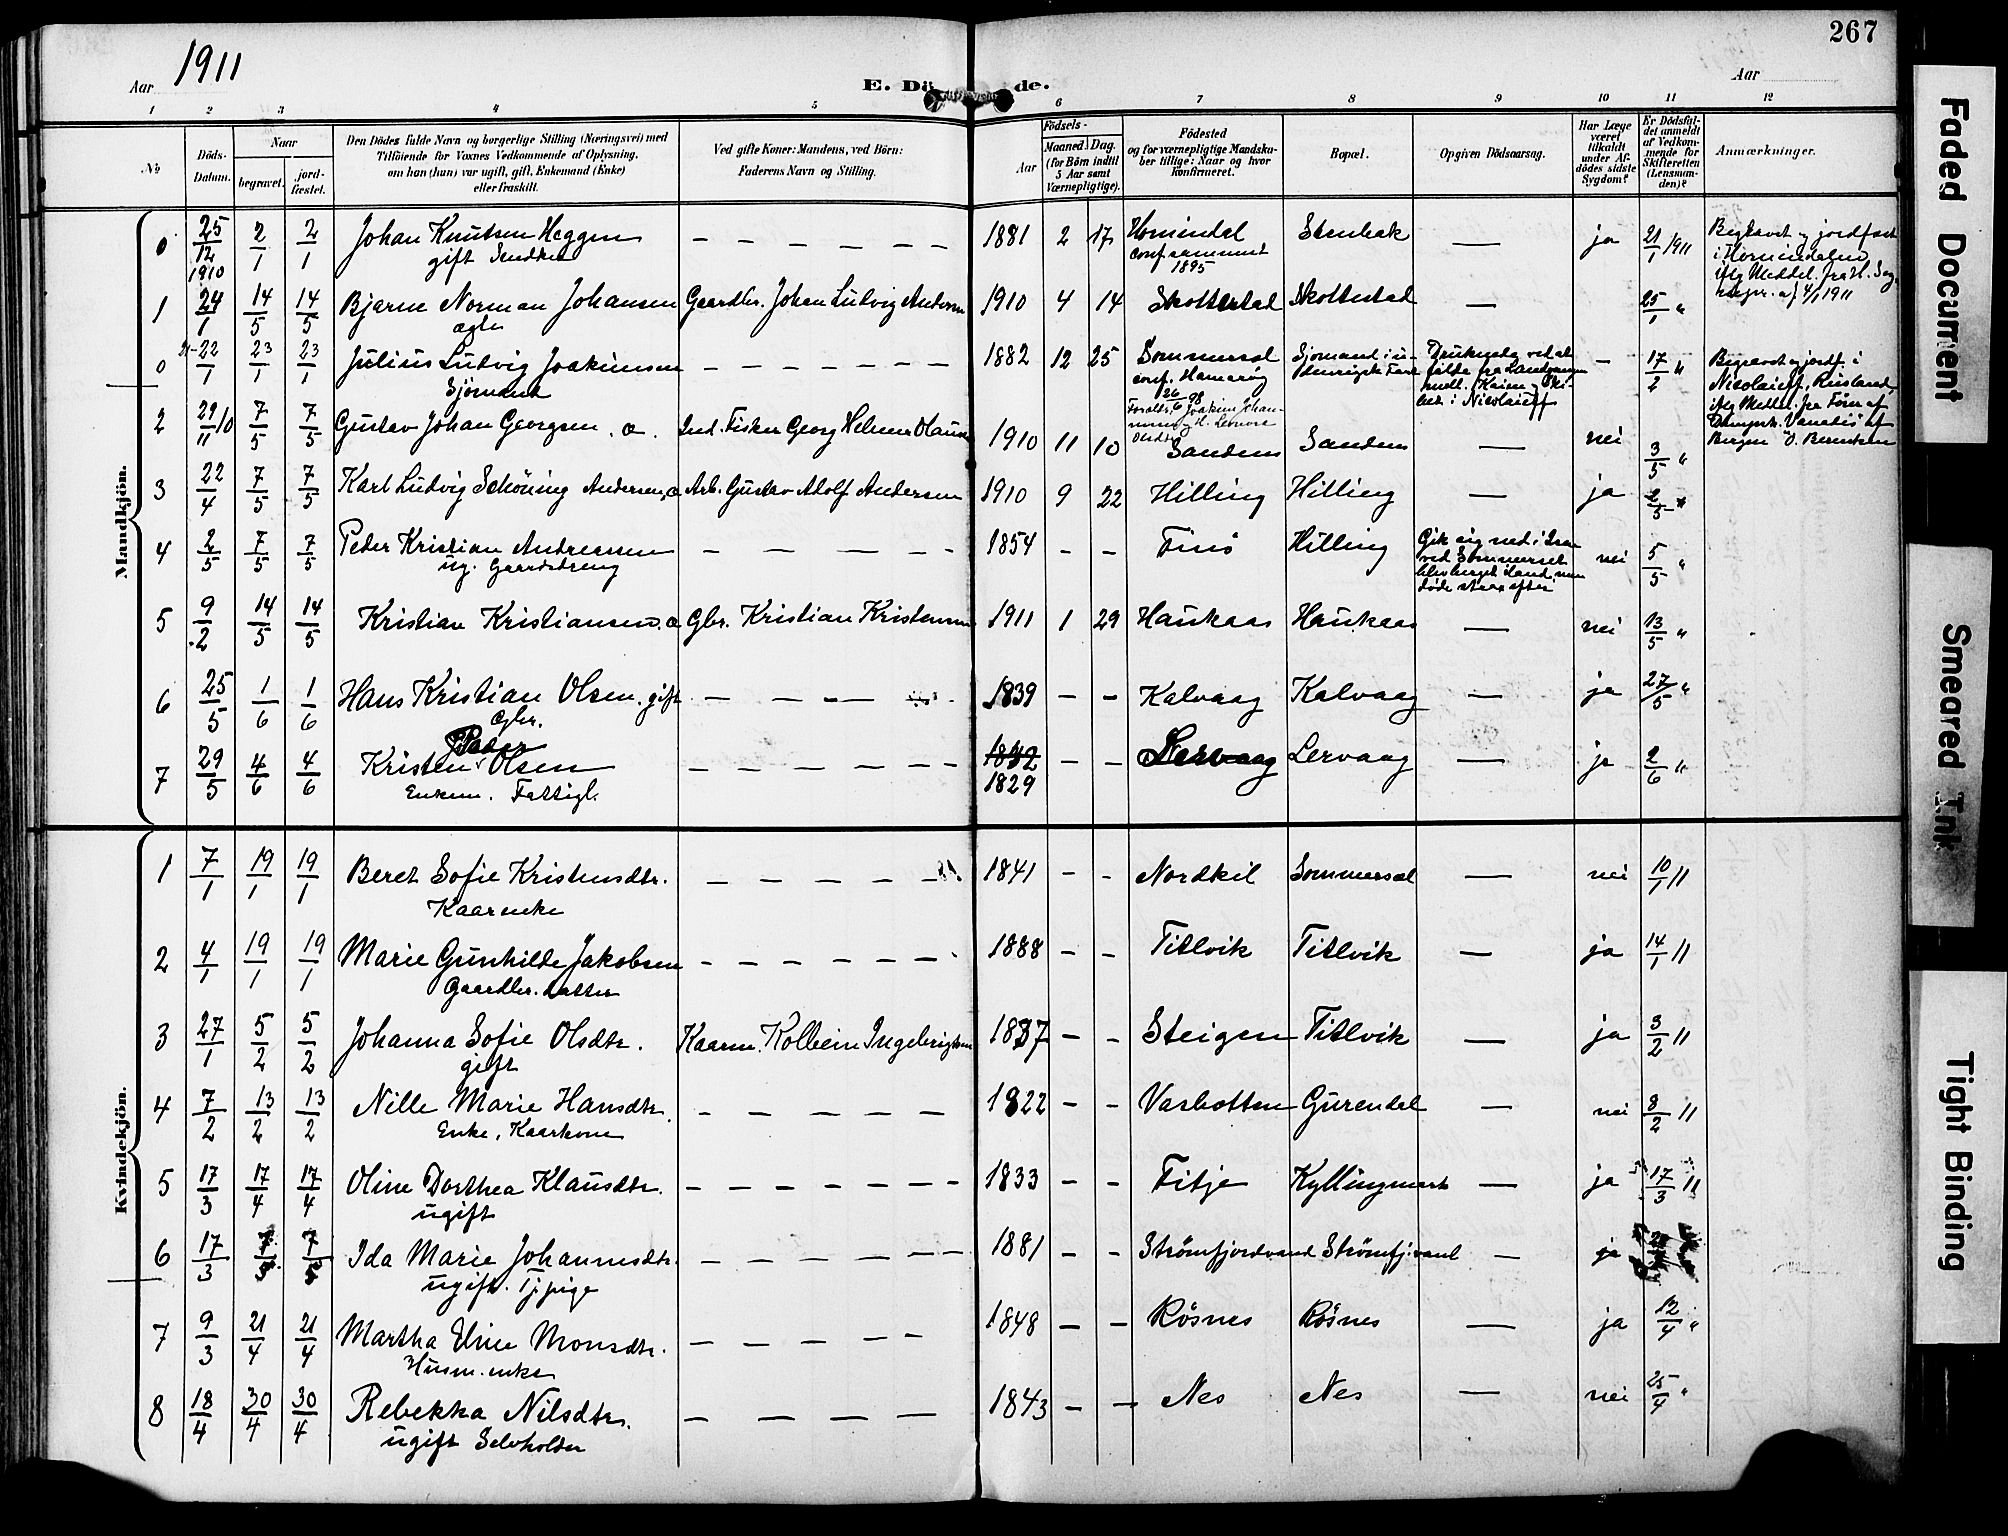 267
Aar 1911
E. Dö de.
Aar
1 2 3 4 5 6 7 8 9 10 11 12
No
Döds-Datum.
Naar
begravet.
jord-fæstet.
Den Dödes fulde Navn og borgerlige Stilling (Næringsvei) med
Tilföiende for Voxnes Vedkommende af Oplysning,
om han (hun) var ugift, gift, Enkemand (Enke)
eller fraskilt.
Ved gifte Koner: Mandens, ved Börn:
Faderens Navn og Stilling.
Födsels-
Aar
Maaned. Dag.
(for Börn indtil
5 Aar samt
Værnepligtige).
Födested
og for værnepligtige Mandska-
ber tillige: Naar og hvor
konfirmeret.
Bopæl.
Opgiven Dödsaarsag.
Har Læge
været
tilkaldt
under Af-
dödes sidste
Sygdom?
Er Dödsfal-
det anmeldt
af Vedkom-
mende for
Skifteretten
(Lensman-
den)?
Anmærkninger.
Mandkjön.
0 25/12 1910 2/1 2/1 Johan Knutsen Heggen – – – – – – 1881 2 17 Hornindal Stenbak — ja 21/1 1911 Begravet og jordfæst
gift
conf. sammest
1895
i Hornindalen
iflg Meddel. fra
4/1 1911
1 24/1 14/5 14/5 Bjarne Norman Johansen Gaardbr. Johan Ludvig Andersen 1910 4 14 Skottestad Skottestad — 25/1 "
ægte
0 21-22/1 23/1 23/1 Julius Ludvig Joakimsen – – – – – – 1882 12 25 Sommersel Sjömand i u- – 17/2 " Begravet og jordf. i
Sjömand
conf. Hamarøy
26/6 98
denrigsk Fart
Druknede ved at
falde fra Landgangen
mell. Kaien og Ski-
bet i Nicolaieff
Nicolaieff, Rusland,
iflg Meddel. fra Føren af
Dampsk. "Vanadis" af
Bergen O. Berentsen
Forældre: Joakim Johan-
2 29/11 10 7/5 7/5 Gustav Johan Georgsen. æ. Ind. Fisker Georg Helmer Olausen 1910 11 10 Sanden Sanden — nei 3/5 "
3 22/4 7/5 7/5 Karl Ludvig Schöning Andersen, æ Arb. Gustav Adolf Andersen 1910 9 22 Hilling Hilling — ja 2/5 "
4 2/5 7/5 7/5 Peder Kristian Andreassen – – – – – 1854 – – Finö Hilling Gik sig ned i Isen nei 5/5 "
ug. Gaardsdreng
ved Sommersel
blev berget iland, men
døde strax efter
5 9/2 14/5 14/5 Kristian Kristiansen. æ Gbr. Kristian Kristensen 1911 1 29 Haukaas Haukaas — nei 13/5 "
6 25/5 1/6 1/6 Hans Kristian Olsen. gift – – – – 1839 – – Kalvaag Kalvaag — ja 27/5 "
Gbr.
Peder
7 29/5 4/6 4/6 Kristen Olsen – – – – – – 1832 – – Lervaag Lervaag — ja 2/6 "
Enkem. Fattigl.
1829
Kvindekjön.
1 7/1 19/1 19/1 Beret Sofie Kristensdtr. – – – – – 1841 – – Nordkil Sommersel — nei 10/1 "
Kaarenke
2 4/1 19/1 19/1 Marie Gunhilde Jakobsen – – – – – – 1888 – – Titlvik Titlvik — ja 14/1 "
Gaardbr. datter
3 27/1 5/2 5/2 Johanna Sofie Olsdtr. Kaarm. Kolbein Ingebrigtsen 1837 – – Steigen Titlvik — ja 3/2 "
gift
4 7/2 13/2 13/2 Nille Marie Hansdtr. – – – – – 1822 – – Vasbotten Gurendel — nei 8/2 "
Enke, Kaarkone
5 17/3 17/4 17/4 Oline Dorthea Klausdtr. – – – – – – – 1833 – – Fitje Kyllingmark — ja 17/3 "
ugift
6 17/3 7/5 7/5 Ida Marie Johannesdtr. – – – – – – 1881 – – Strömfjordvand Strömfj.vand — ja
ugift. Tj.pige
7 9/3 21/4 21/4 Martha Eline Monsdtr. – – – – – 1848 – – Rösnes Rösnes — ja 12/4 "
Husm. enke
8 18/4 30/4 30/4 Rebekka Nilsdtr. – – – – 1843 – – Nes Nes — nei 25/4 "
ugift Selvholder
Faded Document
Smeared Ink
Tight Binding